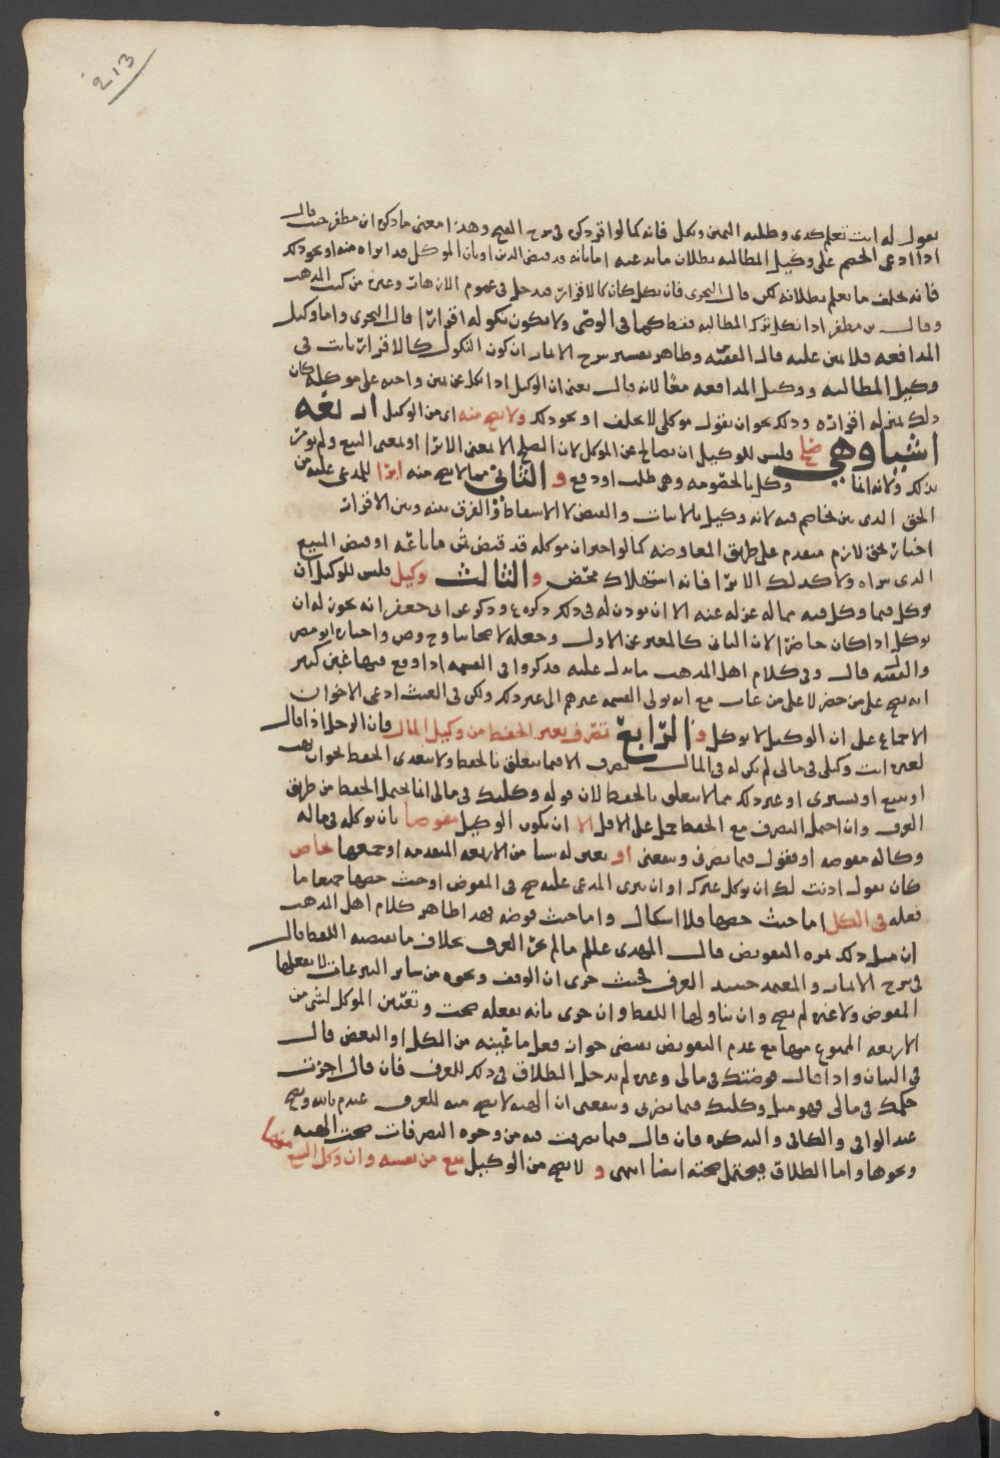 213
يقول له انت تعلم كذى وطلبه اليمين ونكل فانه كما لو اقر ذكره فى شرح الفتح وهذا معنى ما ذكره ابن مظفر حيث قال
اذا ادعى الخصم على وكيل المطالبه بطلان ما يدعيه اما بانه قد قبض الدين او بان الموكل قد ابراه منه او نحو ذلك
فانه يحلف ما يعلم بطلانه لكن قال البحرى فان نكل كان كالاقرار فيدخل فى عموم الازهار وغيره من كتب المذهب
وقال بن مظفر اذا نكل ترك المطالبه فقط كما فى الوصى ولا يكون نكوله اقرارا قال البحرى واما وكيل
المدافعه فلا يمين عليه قال الفقيه وظاهر تفسير شرح الاثمار ان كون النكول كالاقرار ثابت فى
وكيل المطالبه ووكيل المدافعه معًا لانه قال يعنى ان الوكيل اذا نكل عن يمين واجبه على موكله كان
ذلك بمنزله اقراره وذلك نحو ان يقول موكلى لا يحلف او نحو ذلك ولا يصح منه اى من الوكيل اربعه
اشيا وهي صلح فليس للوكيل ان يصالح عن الموكل لان الصلح اما بمعنى الابرا او بمعنى البيع ولم يؤمر
بذلك ولانه انما وكل بالخصومه وهى طلب او دفع و الثانى مما لا يصح منه ابرا للمدعى عليه من
الحق الذى يخاصم فيه لانه وكيل بالاثبات والقبض لا الاسقاط والفرق بينه وبين الاقرار
اخبار بحق لازم متقدم على طريق المعاوضه كما لو اخبر ان موكله قد قبض ثمن ما باعه او قبض المبيع
الذى شراه ولا كذلك الابرا فانه استهلاك محض و الثالث توكيل فليس للوكيل ان
يوكل فيما وكل فيه مما له عزله عنه الا ان يوذن له فى ذلك ذكره ع وذكر عن ابى جعفر انه يجوز له ان
يوكل اذا كان حاضرا لان الثانى كالمعبر عن الاول وجعله لا صحابنا وح وص واختاره ابو مضر
والفقيه قال وفى كلام اهل المذهب ما يدل عليه فذكروا فى القسمه اذا وقع فيها غبن كثير
انه يصح على من حضر لا على من غاب مع انه تولى القسمه غيرهم الى غير ذلك ولكن فى الغيث ادعى الاخوان
الاجماع على ان الوكيل لا يوكل و الرابع تصرف بغير الحفظ من وكيل المال فان الرجل اذا قال
لغيره انت وكيلى فى مالى لم يكن له فى المال تصرف الا فيما يتعلق بالحفظ ولا يتعدى الحفظ نحو ان يهب
او يبيع او يشترى او غير ذلك مما لا يتعلق بالحفظ لان قوله وكلتك فى مالى انما يحتمل الحفظ من طريق
العرف وان احتمل التصرف مع الحفظ حمل على الاقل الا ان يكون الوكيل مفوضا بان يوكله فى ماله
وكاله مفوضه او يقول فيما تصرف ويقضى او يعين له شيا من الاربعه المتقدمه او جميعها خاص
كان يقول اذنت لك ان توكل غيرك او ان تبرى المدعى عليه صح فى المفوض او حيث خصها جميعا ما
فعله فى الكل اما حيث خصها فلا اشكال واما حيث فوضه فهذا ظاهر كلام اهل المذهب
ان مثل ذلك ثمره التفويض قال المهدى علم ما لم يجر العرف بخلاف ما يقتضيه اللفظ قال
فى شرح الاثمار والمعتمد حينئذ العرف فحيث جرى ان الوقف ونحوه من ساير التبرعات لا يفعلها
المفوض ولا غيره لم يصح وان تناولها اللفظ وان جرى بانه يفعله صحت وتعيين الموكل لشى من
الاربعه الممنوع منها مع عدم التفويض يقتضى جواز فعل ما عينه من الكل او البعض قال
فى البيان واذا قال فوضتك فى مالى وغيره لم يدخل الطلاق فى ذلك للعرف فان قال اجزت
حكمك فى مالى فهو مثل وكلتك فيما تصرف ويقضى ان الهبه لا تصح منه للعرف عند م بالله ويصح
عند الوافى والكافى والتذكره فان قال فيما تصرفت فيه من وجوه التصرفات صحت الهبه
ونحوها واما الطلاق فيحتمل صحته ايضا انتهى و لا يصح من الوكيل بيع من نفسه وان وكل البيع منها